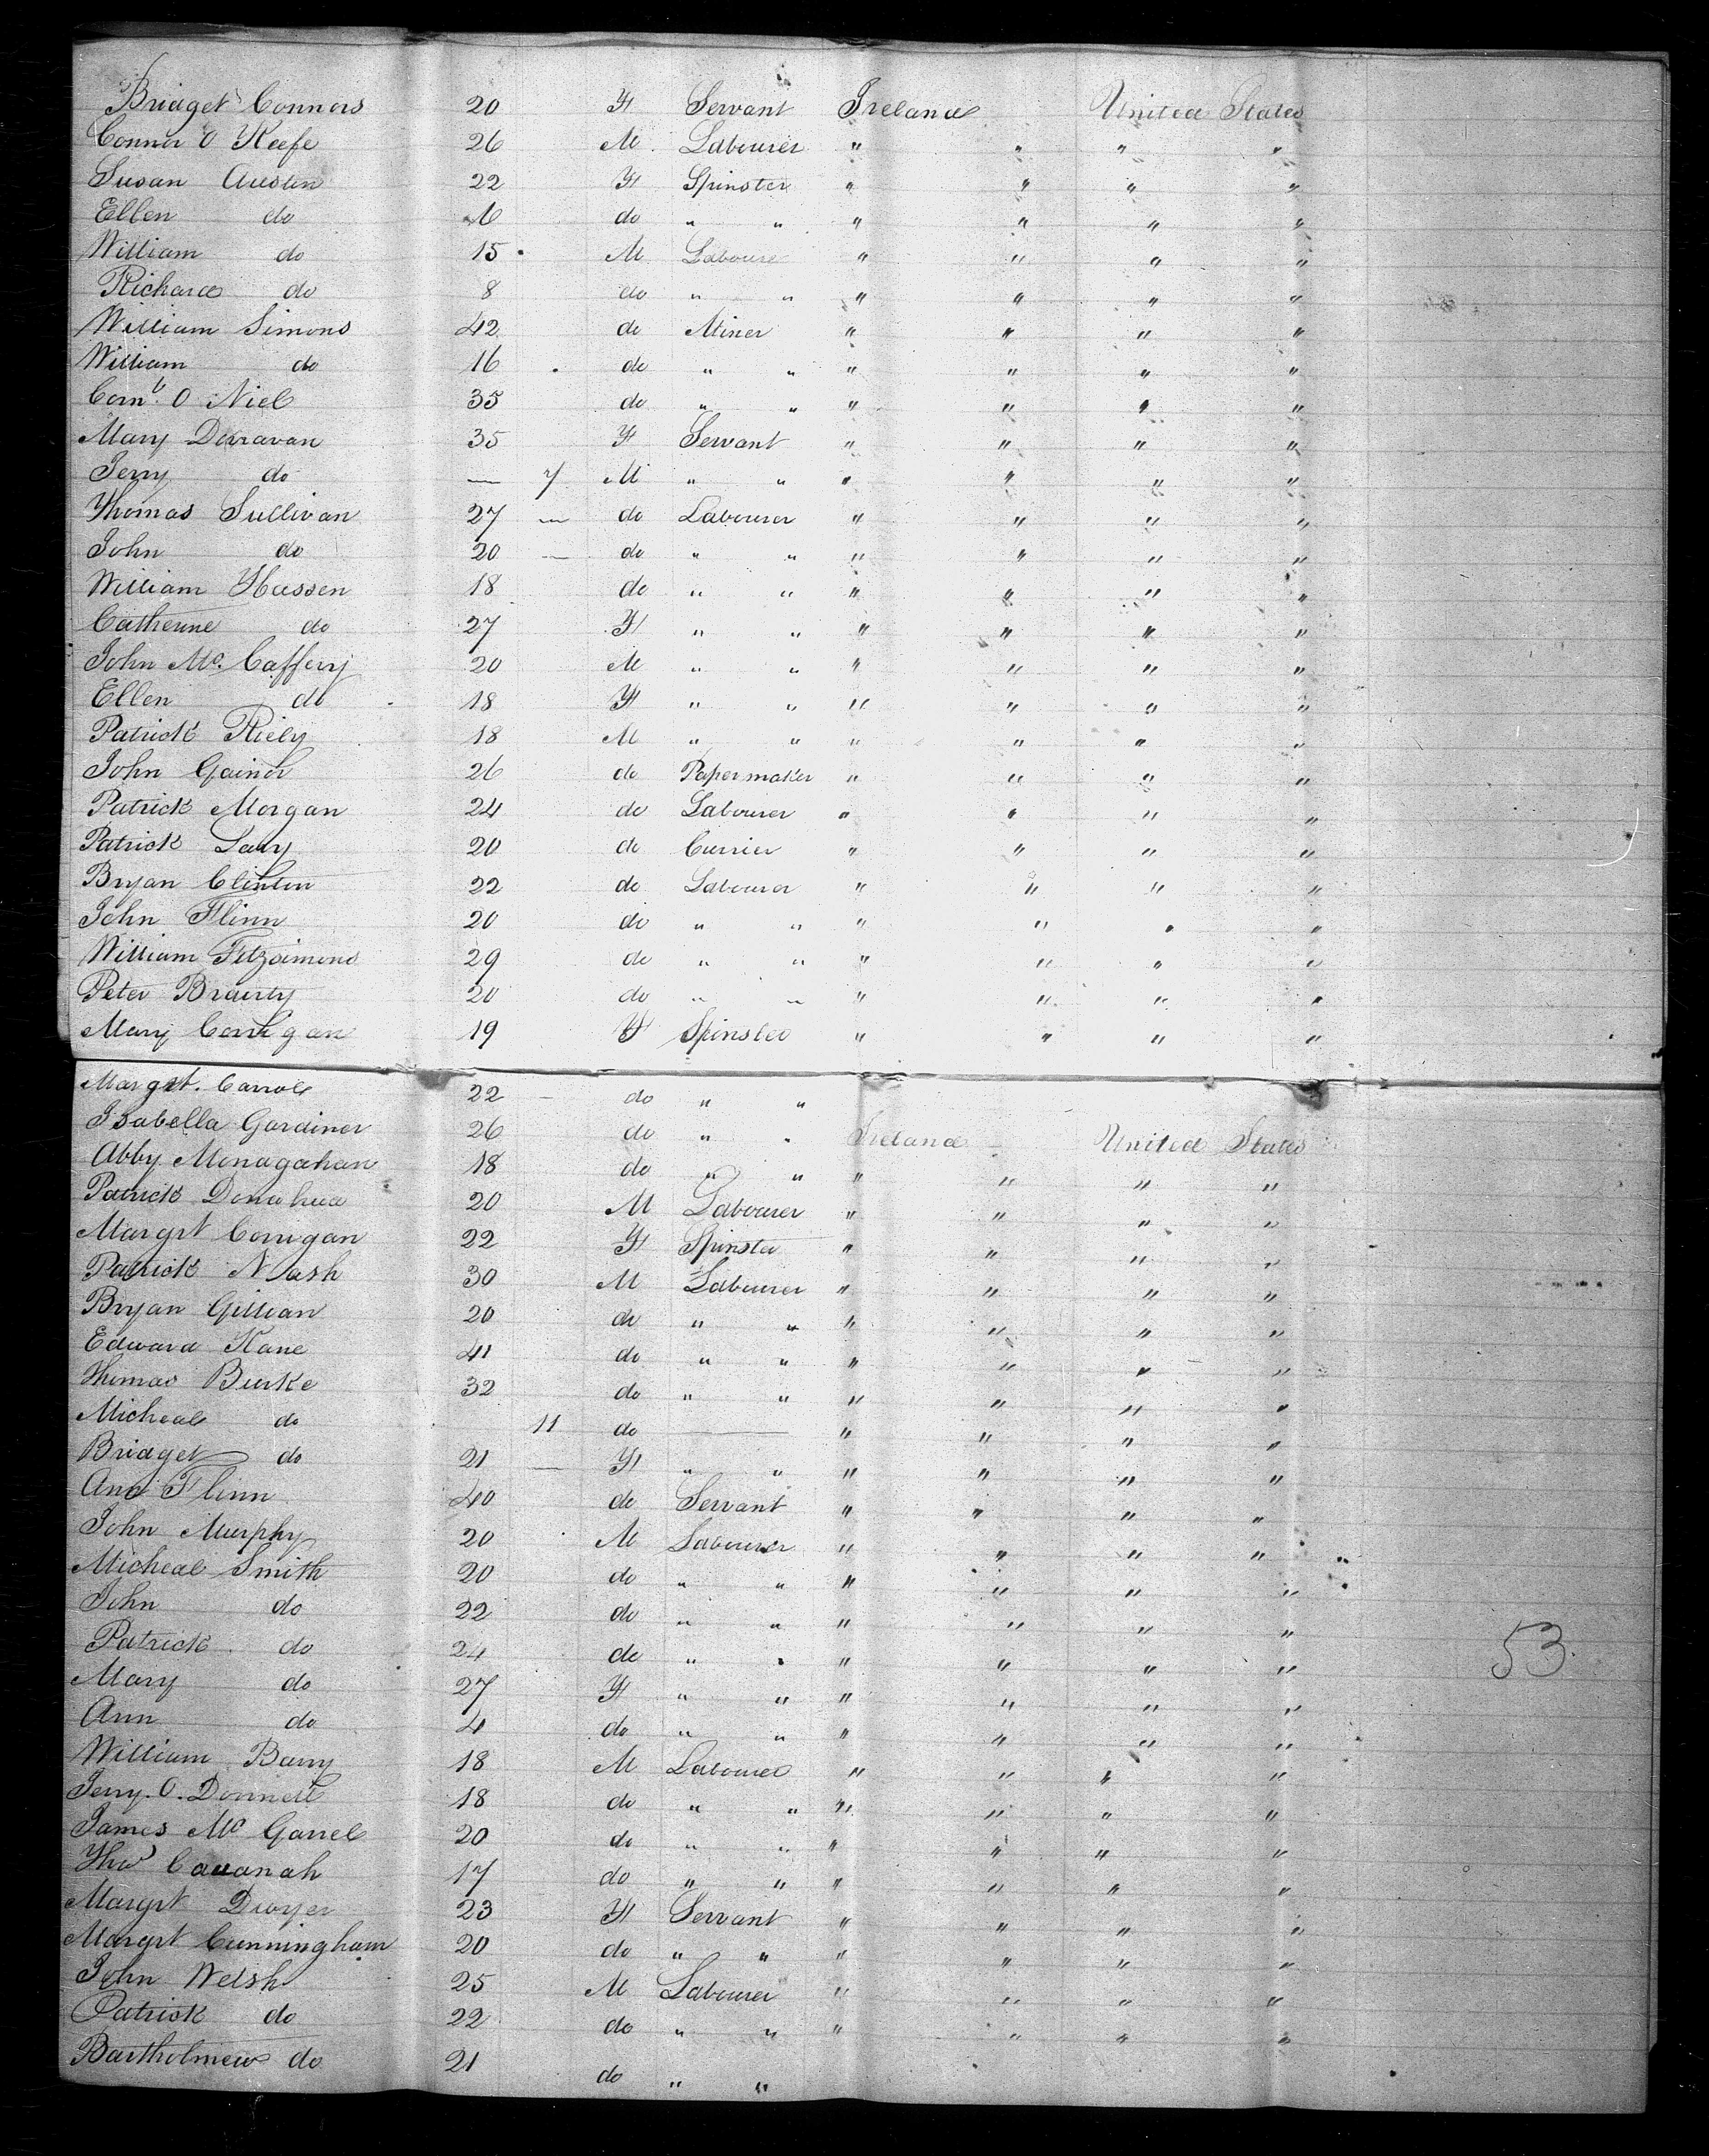 Bridget Connors 20 F Servant Ireland United States
Connor O Keefe 26 M Labourer " " " "
Susan Austen 22 F Spinster " " " "
Ellen do do " " " " " "
William do 15 M Labourer " " " "
Richard do 8 do " " " " " "
William Simons 42 do Miner " " " "
William do 16 do " " " " " "
Corn.l O Niel 35 do " " " " " "
Mary Donavan 35 F Servant " " " "
Jerry do — 7 M " " " " " "
Thomas Sullivan 27 — do Labourer " " " "
John do 20 — do " " " " " "
William Hassen 18 do " " " " " "
Catherine do 27 F " " " " " "
John Mc. Caffery 20 M " " " " " "
Ellen do 18 F " " " " " "
Patrick Riely 18 M " " " " " "
John Gainor 26 do Papermaker " " " "
Patrick Morgan 24 do Labourer " " " "
Patrick 20 do Currier " " " "
Bryan Clinton 22 do Labourer " " " "
John Flinn 20 do " " " " " "
William Fitzsimons 29 do " " " " " "
Peter 20 do " " " " " "
Mary Corrigan 19 F Spinster " " " "
Margrt. Carrol 22 — do " "
Isabella Gardiner 26 do " " Ireland United States
Abby Monagahan 18 do " " " " " "
Patrick Donahue 20 M Labourer " " " "
Margrt Corrigan 22 F Spinster " " " "
Patrick Nash 30 M Labourer " " " "
Bryan Gillian 20 do " " " " " "
Edward Kane 41 do " " " " " "
Thomas Burke 32 do " " " " " "
Micheal do 11 do — " " " "
Bridget do 21 — F " " " " " "
Ann Flinn 40 do Servant " " " "
John Murphy 20 M Labourer " " " "
Micheal Smith 20 do " " " " " "
John do 22 do " " " " " "
Patrick do 24 do " " " " " "
Mary do 27 F " " " " " "
Ann do 4 do " " " " " "
William Barry 18 M Labourer " " " "
Jerry O. Donnell 18 do " " " " " "
James Mc Garrel 20 do " " " " " "
Thos Cavanah 17 do " " " " " "
Margrt Dwyer 23 F Servant " " " "
Margrt Cunningham 20 do " " " " " "
John Welsh 25 M Labourer " " " "
Patrick do 22 do " " " " " "
Bartholmew do 21 do " "
53.